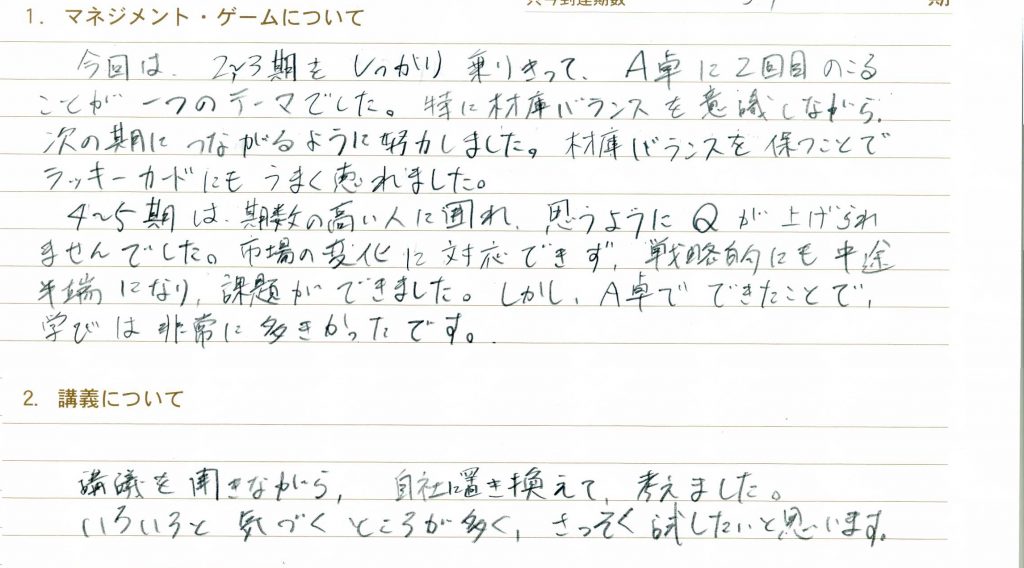 只今到達期数 期
1. マネジメント・ゲームについて
今回は、2~3期をしっかり乗りきって、A卓に2回目のこる
ことが一つのテーマでした。特に材庫バランスを意識しながら、
次の期につながるように努力しました。材庫バランスを保つことで
ラッキーカードにもうまく恵れました。
4~5期は、期数の高い人に囲れ、思うようにQが上げられ
ませんでした。市場の変化に対応できず、戦略的にも中途
半端になり、課題ができました。しかし、A卓でできたことで、
学びは非常に多きかったです。
2. 講義について
講議を聞きながら、自社に置き換えて、考えました。
いろいろと気づくところが多く、さっそく試したいと思います。